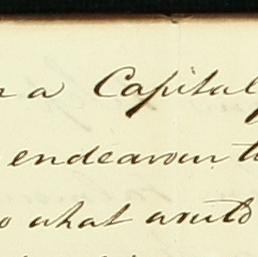 a Capital
endeavour t
what would